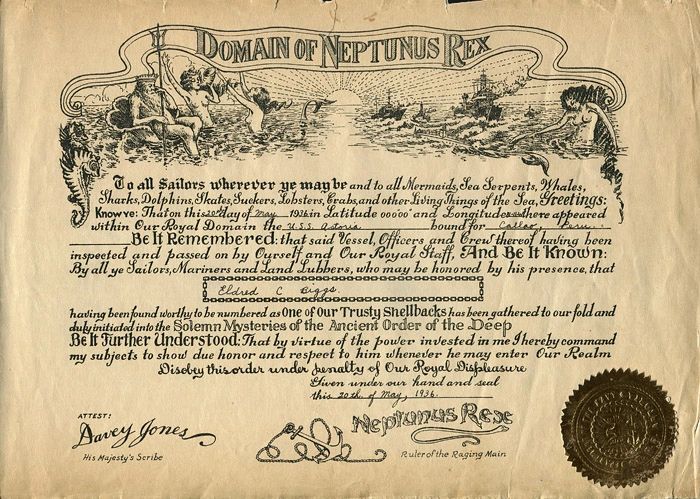 DOMAIN OF NEPTUNUS REX
To all Sailors wherever ye may be and to all Mermaids, Sea Serpents, Whales,
Sharks, Dolphins, Skates, Suckers, Lobsters, Crabs, and other Living Things of the Sea, Greetings:
Know ye: That on this 20th day of May 1936 in Latitude 00000 and Longitude there appeared
within Our Royal Domain the U.S.S. Astoria bound for Callao, Peru.
Be It Remembered: that said Vessel, Officers and Crew thereof having been
inspected and passed on by Ourself and Our Royal Staff, And Be It Known:
By all ye Sailors, Mariners and Land Lubbers, who may be honored by his presence, that
Eldred C Biggs
having been found worthy to be numbered as One of Our Trusty Shellbacks has been gathered to our fold and
duly initiated into the Solemn Mysteries of the Ancient Order of the Deep
Be It Further Understood: That by virtue of the power invested in me I hereby command
my subjects to show due honor and respect to him whenever he may enter Our Realm
Disobey this order under penalty of Our Royal Displeasure
Given under our hand and seal
this 20th of May, 1936.
ATTEST:
Davey Jones
His Majesty's Scribe
Neptunus Rex
Ruler of the Raging Main